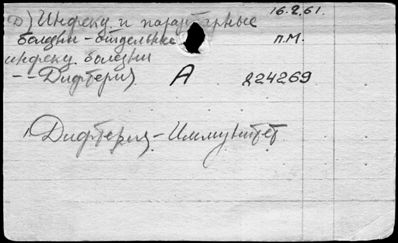 16.2.61.
Д) Инфекц. и паразитарные
болезни - отдельные п.М.
инфекц. болезни
- Дифтерия. А 224269
Дифтерия - Иммунитет